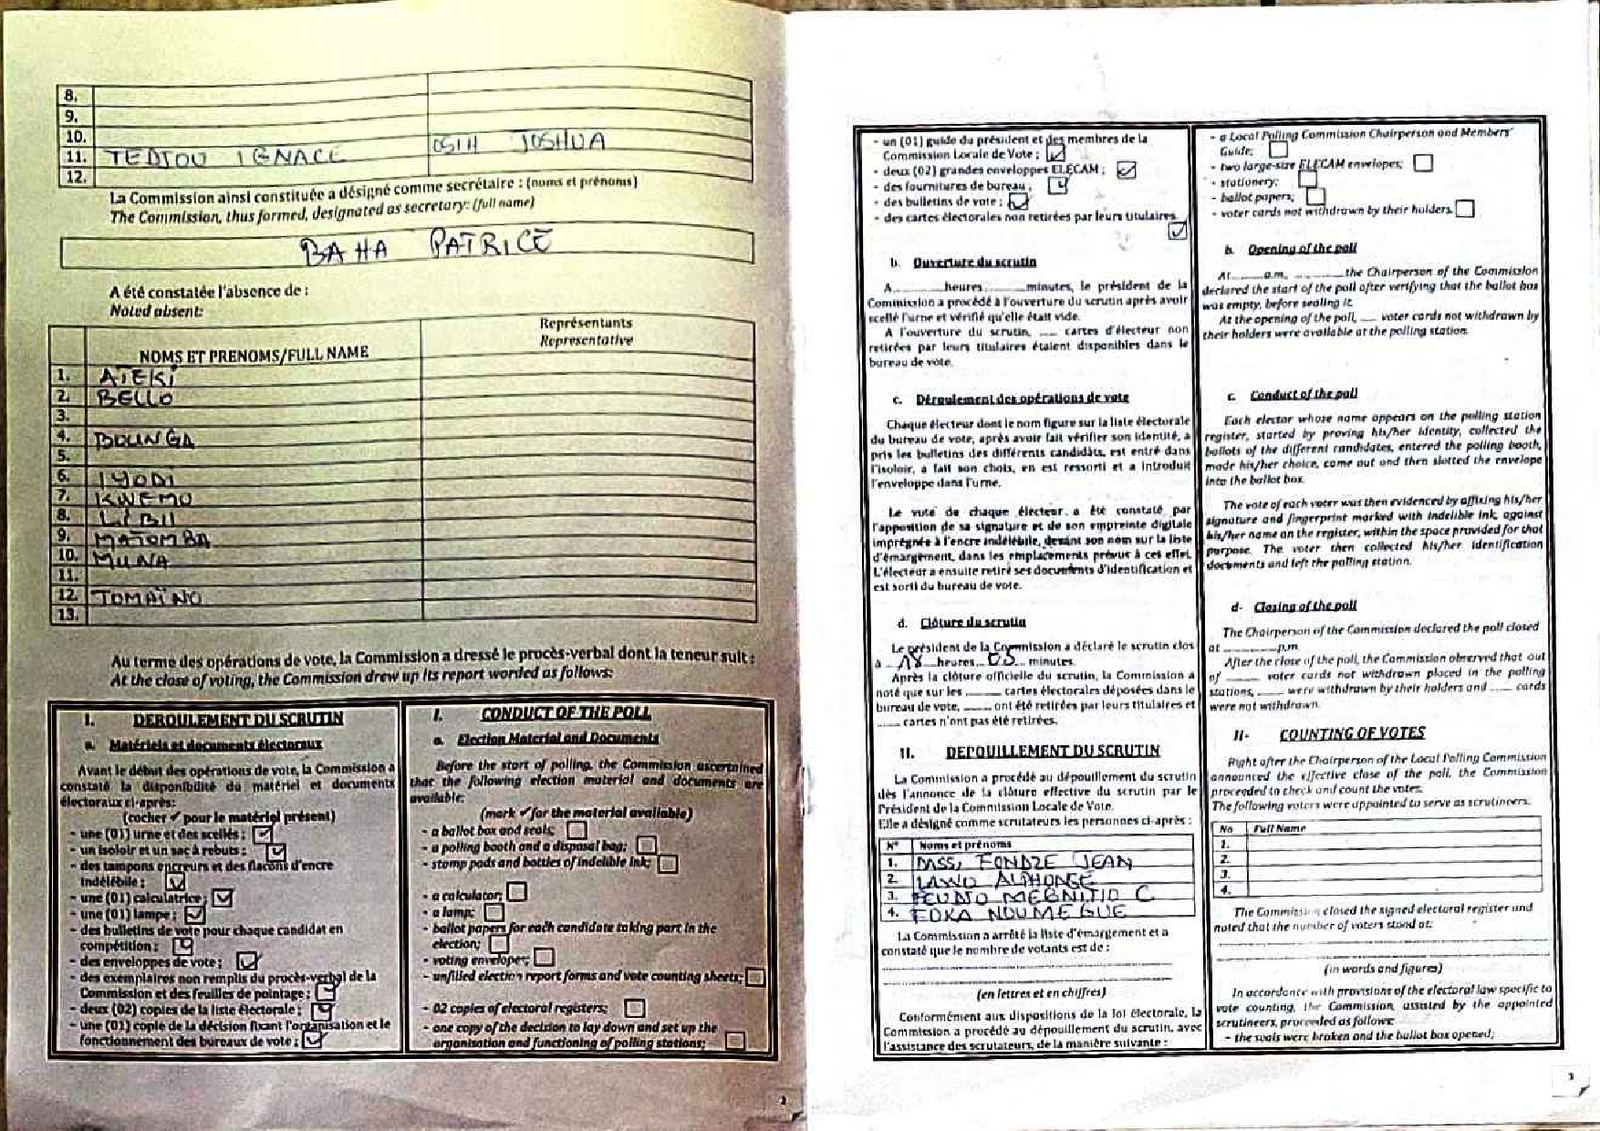 8.
9.
10.
11. TEDJOU IGNACE OSIH JOSHUA
12.
La Commission ainsi constituée a désigné comme secrétaire : (noms et prénoms)
The Commission, thus formed, designated as secretary: (full name)
BAHA PATRICE
A été constatée l'absence de :
Noted absent:
NOMS ET PRENOMS/FULL NAME
Représentants
Representative
1. ATEKI
2. BELLO
3.
4. BOUNGA
5.
6. IYODI
7. KWEMO
8. LIBII
9. MATOMBA
10. MUNA
11.
12. TOMAÏNO
13.
Au terme des opérations de vote, la Commission a dressé le procès-verbal dont la teneur suit :
At the close of voting, the Commission drew up its report worded as follows:
I. DEROULEMENT DU SCRUTIN
a. Matériels et documents électoraux
Avant le début des opérations de vote, la Commission a
constaté la disponibilité du matériel et documents
électoraux ci-après:
(cocher ✓ pour le matériel présent)
- une (01) urne et des scellés ; ☑
- un isoloir et un sac à rebuts ; ☑
- des tampons encreurs et des flacons d'encre
indélébile ; ☑
- une (01) calculatrice ; ☑
- une (01) lampe ; ☑
- des bulletins de vote pour chaque candidat en
compétition ; ☑
- des enveloppes de vote ; ☑
- des exemplaires non remplis du procès-verbal de la
Commission et des feuilles de pointage ; ☑
- deux (02) copies de la liste électorale ; ☑
- une (01) copie de la décision fixant l'organisation et le
fonctionnement des bureaux de vote ; ☑
I. CONDUCT OF THE POLL
a. Election Material and Documents
Before the start of polling, the Commission ascertained
that the following election material and documents are
available:
(mark ✓ for the material available)
- a ballot box and seals; ☐
- a polling booth and a disposal bag; ☐
- stamp pads and bottles of indelible ink; ☐
- a calculator; ☐
- a lamp; ☐
- ballot papers for each candidate taking part in the
election; ☐
- voting envelopes; ☐
- unfilled election report forms and vote counting sheets; ☐
- 02 copies of electoral registers; ☐
- one copy of the decision to lay down and set up the
organisation and functioning of polling stations; ☐
2
- un (01) guide du président et des membres de la
Commission Locale de Vote ; ☑
- deux (02) grandes enveloppes ELECAM ; ☑
- des fournitures de bureau ; ☑
- des bulletins de vote ; ☑
- des cartes électorales non retirées par leurs titulaires.
☑
b. Ouverture du scrutin
A..........heures..........minutes, le président de la
Commission a procédé à l'ouverture du scrutin après avoir
scellé l'urne et vérifié qu'elle était vide.
A l'ouverture du scrutin, ..... cartes d'électeur non
retirées par leurs titulaires étaient disponibles dans le
bureau de vote.
c. Déroulement des opérations de vote
Chaque électeur dont le nom figure sur la liste électorale
du bureau de vote, après avoir fait vérifier son identité, a
pris les bulletins des différents candidats, est entré dans
l'isoloir, a fait son choix, en est ressorti et a introduit
l'enveloppe dans l'urne.
Le vote de chaque électeur a été constaté par
l'apposition de sa signature et de son empreinte digitale
imprégnée à l'encre indélébile, devant son nom sur la liste
d'émargement, dans les emplacements prévus à cet effet.
L'électeur a ensuite retiré ses documents d'identification et
est sorti du bureau de vote.
d. Clôture du scrutin
Le président de la Commission a déclaré le scrutin clos
à ..18..heures..03.. minutes.
Après la clôture officielle du scrutin, la Commission a
noté que sur les .......... cartes électorales déposées dans le
bureau de vote, ........ ont été retirées par leurs titulaires et
........ cartes n'ont pas été retirées.
II. DEPOUILLEMENT DU SCRUTIN
La Commission a procédé au dépouillement du scrutin
dès l'annonce de la clôture effective du scrutin par le
Président de la Commission Locale de Vote.
Elle a désigné comme scrutateurs les personnes ci-après :
N° Noms et prénoms
1. JEAN
2. ALPHONSE
3. C
4. FOKA NOUMEGUE
La Commission a arrêté la liste d'émargement et a
constaté que le nombre de votants est de :
(en lettres et en chiffres)
Conformément aux dispositions de la loi électorale, la
Commission a procédé au dépouillement du scrutin, avec
l'assistance des scrutateurs, de la manière suivante :
- a Local Polling Commission Chairperson and Members'
Guide; ☐
- two large-size ELECAM envelopes; ☐
- stationery; ☐
- ballot papers; ☐
- voter cards not withdrawn by their holders. ☐
b. Opening of the poll
At..........a.m, ..........the Chairperson of the Commission
declared the start of the poll after verifying that the ballot box
was empty, before sealing it.
At the opening of the poll, ..... voter cards not withdrawn by
their holders were available at the polling station.
c. Conduct of the poll
Each elector whose name appears on the polling station
register, started by proving his/her identity, collected the
ballots of the different candidates, entered the polling booth,
made his/her choice, came out and then slotted the envelope
into the ballot box.
The vote of each voter was then evidenced by affixing his/her
signature and fingerprint marked with indelible ink, against
his/her name on the register, within the space provided for that
purpose. The voter then collected his/her identification
documents and left the polling station.
d- Closing of the poll
The Chairperson of the Commission declared the poll closed
at ..........p.m.
After the close of the poll, the Commission observed that out
of ........ voter cards not withdrawn placed in the polling
stations, ........ were withdrawn by their holders and ...... cards
were not withdrawn.
II- COUNTING OF VOTES
Right after the Chairperson of the Local Polling Commission
announced the effective close of the poll, the Commission
proceeded to check and count the votes.
The following voters were appointed to serve as scrutineers.
No Full Name
1.
2.
3.
4.
The Commission closed the signed electoral register and
noted that the number of voters stood at:
(in words and figures)
In accordance with provisions of the electoral law specific to
vote counting, the Commission, assisted by the appointed
scrutineers, proceeded as follows:
- the seals were broken and the ballot box opened;
3